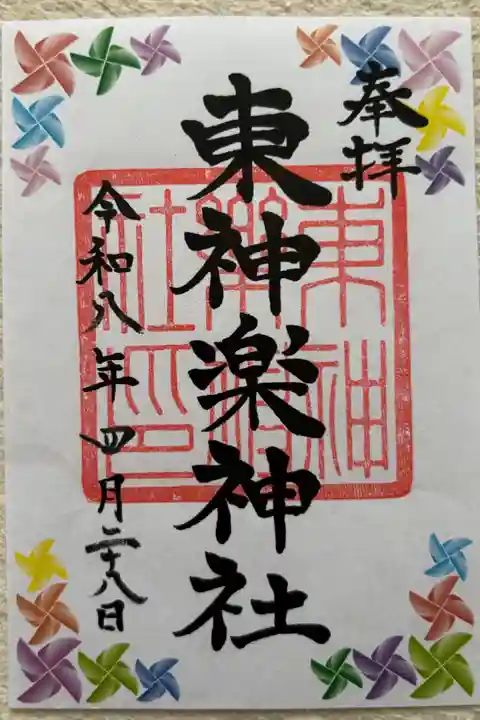 奉拝
東神楽神社
令和八年四月二十八日
東神
楽神
社印